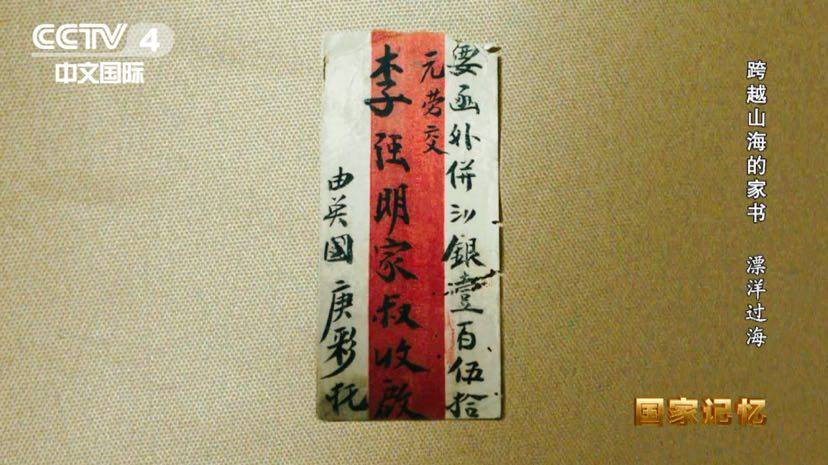 CCTV 4
中文国际
跨越山海的家书 漂洋过海
要函外併沙銀壹百伍拾
元劳交
李强明家叔收啟
由英國庚彩托
国家记忆